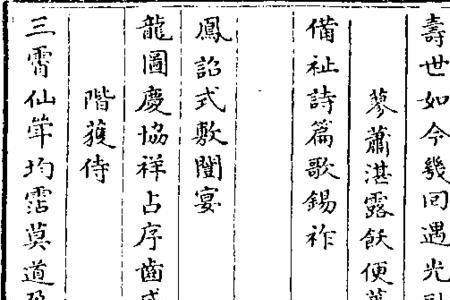 壽世如今幾回遇光
蓼蕭湛露飫便
備祉詩篇歌錫祚
鳳詔式敷闓宴
龍圖慶協祥占序齒
階獲侍
三霄仙均霑莫道